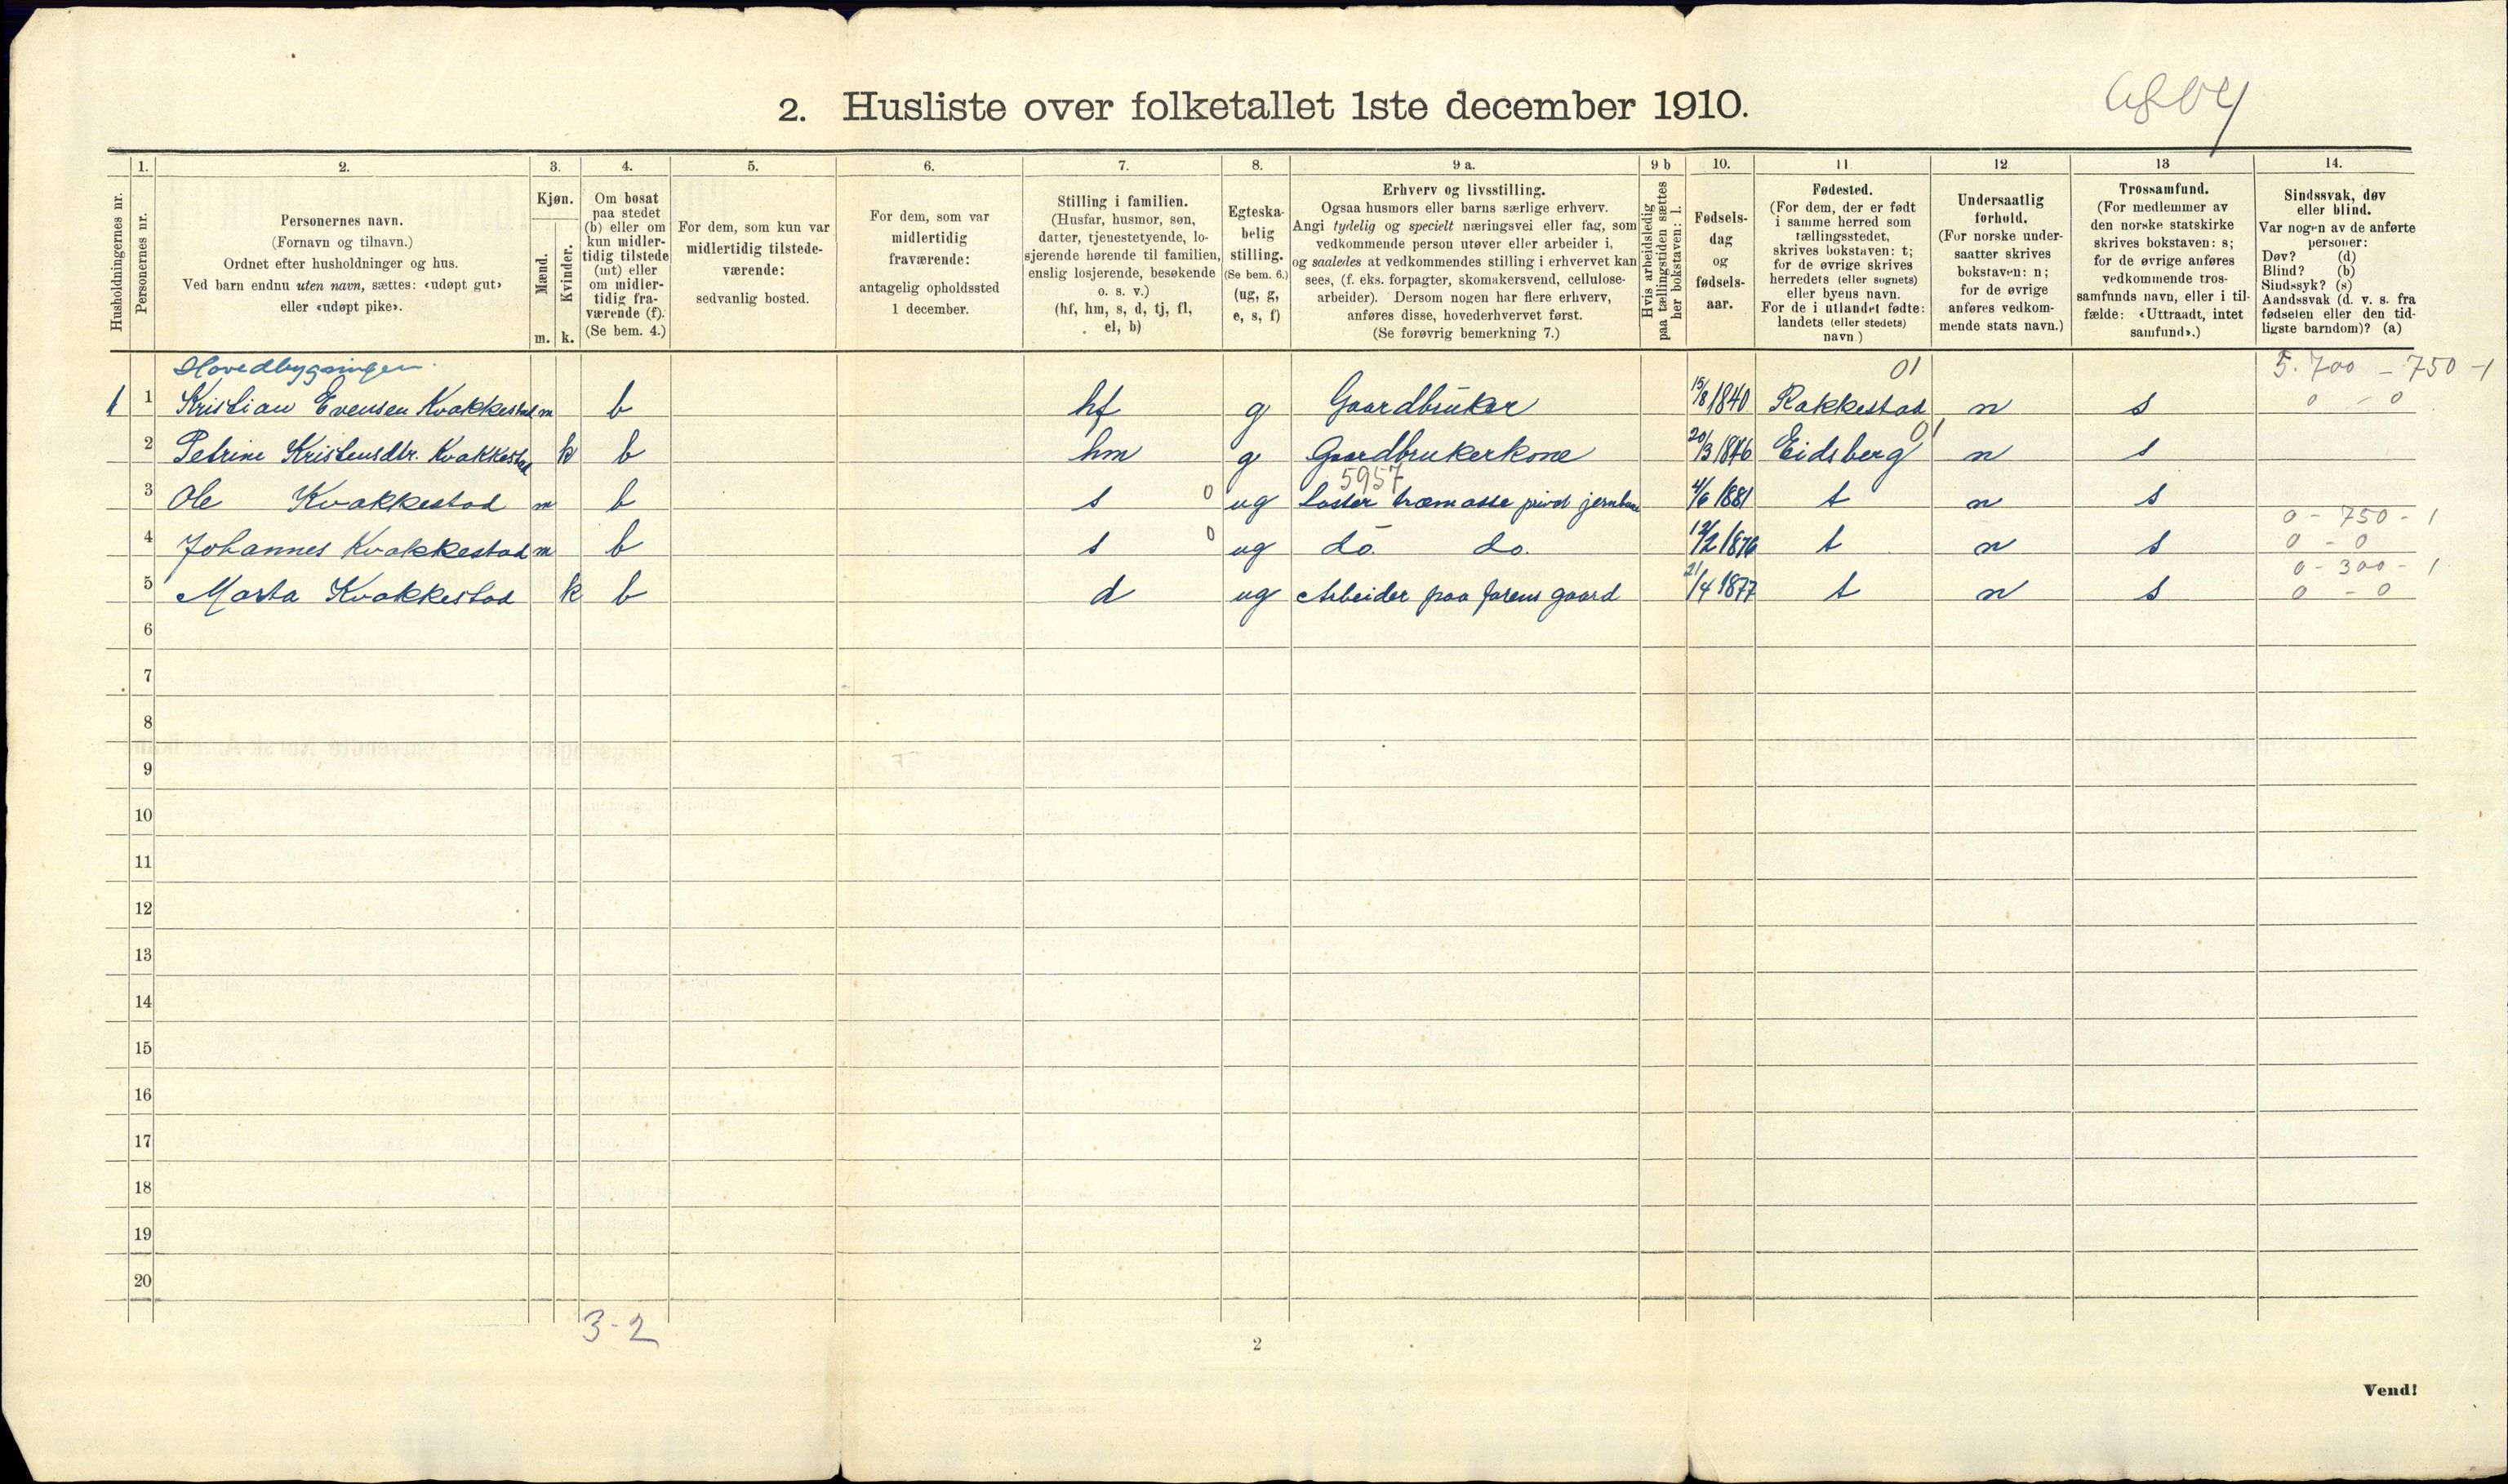 2. Husliste over folketallet 1ste december 1910.
Husholdningernes nr.
1.
Personernes nr.
2.
Personernes navn.
(Fornavn og tilnavn.)
Ordnet efter husholdninger og hus.
Ved barn endnu uten navn, sættes: «udøpt gut»
eller «udøpt pike».
3.
Kjøn.
Mænd.
Kvinder.
m. k.
4.
Om bosat
paa stedet
(b) eller om
kun midler-
tidig tilstede
(mt) eller
om midler-
tidig fra-
værende (f).
(Se bem. 4.)
5.
For dem, som kun var
midlertidig tilstede-
værende:
sedvanlig bosted.
6.
For dem, som var
midlertidig
fraværende:
antagelig opholdssted
1 december.
7.
Stilling i familien.
(Husfar, husmor, søn,
datter, tjenestetyende, lo-
sjerende hørende til familien,
enslig losjerende, besøkende
o. s. v.)
(hf, hm, s, d, tj, fl,
el, b)
8.
Egteska-
belig
stilling.
(Se bem. 6.)
(ug, g,
e, s, f)
9 a.
Erhverv og livsstilling.
Ogsaa husmors eller barns særlige erhverv.
Angi tydelig og specielt næringsvei eller fag, som
vedkommende person utøver eller arbeider i,
og saaledes at vedkommendes stilling i erhvervet kan
sees, (f. eks. forpagter, skomakersvend, cellulose-
arbeider). Dersom nogen har flere erhverv,
anføres disse, hovederhvervet først.
(Se forøvrig bemerkning 7.)
9 b
Hvis arbeidsledig
paa tællingstiden sættes
her bokstaven: l.
10.
Fødsels-
dag
og
fødsels-
aar.
11
Fødested.
(For dem, der er født
i samme herred som
tællingsstedet,
skrives bokstaven: t;
for de øvrige skrives
herredets (eller sognets)
eller byens navn.
For de i utlandet fødte:
landets (eller stedets)
navn.)
12
Undersaatlig
forhold.
(For norske under-
saatter skrives
bokstaven: n;
for de øvrige
anføres vedkom-
mende stats navn.)
13
Trossamfund.
(For medlemmer av
den norske statskirke
skrives bokstaven: s;
for de øvrige anføres
vedkommende tros-
samfunds navn, eller i til-
fælde: «Uttraadt, intet
samfund».)
14.
Sindssvak, døv
eller blind.
Var nogen av de anførte
personer:
Døv? (d)
Blind? (b)
Sindssyk? (s)
Aandssvak (d. v. s. fra
fødselen eller den tid-
ligste barndom)? (a)
Hovedbygningen. 01 5.700 - 750 - 1
1 1 Kristian Evensen Kvakkestad m b hf g Gaardbruker 15/8 1840 Rakkestad n s 0 - 0
01
2 Petrine Kristensdtr. Kvakkestad k b hm g Gaardbrukerkone 20/3 1846 Eidsberg n s
5957
3 Ole Kvakkestad m b s 0 ug Laster træmasse privat jernbane 4/6 1881 t n s
0 - 750 - 1
4 Johannes Kvakkestad m b s 0 ug do. do. 12/2 1876 t n s 0 - 0
0 - 300 - 1
5 Marta Kvakkestad k b d ug Arbeider paa farens gaard 21/4 1877 t n s 0 - 0
6
7
8
9
10
11
12
13
14
15
16
17
18
19
20
3-2
2
Vend!